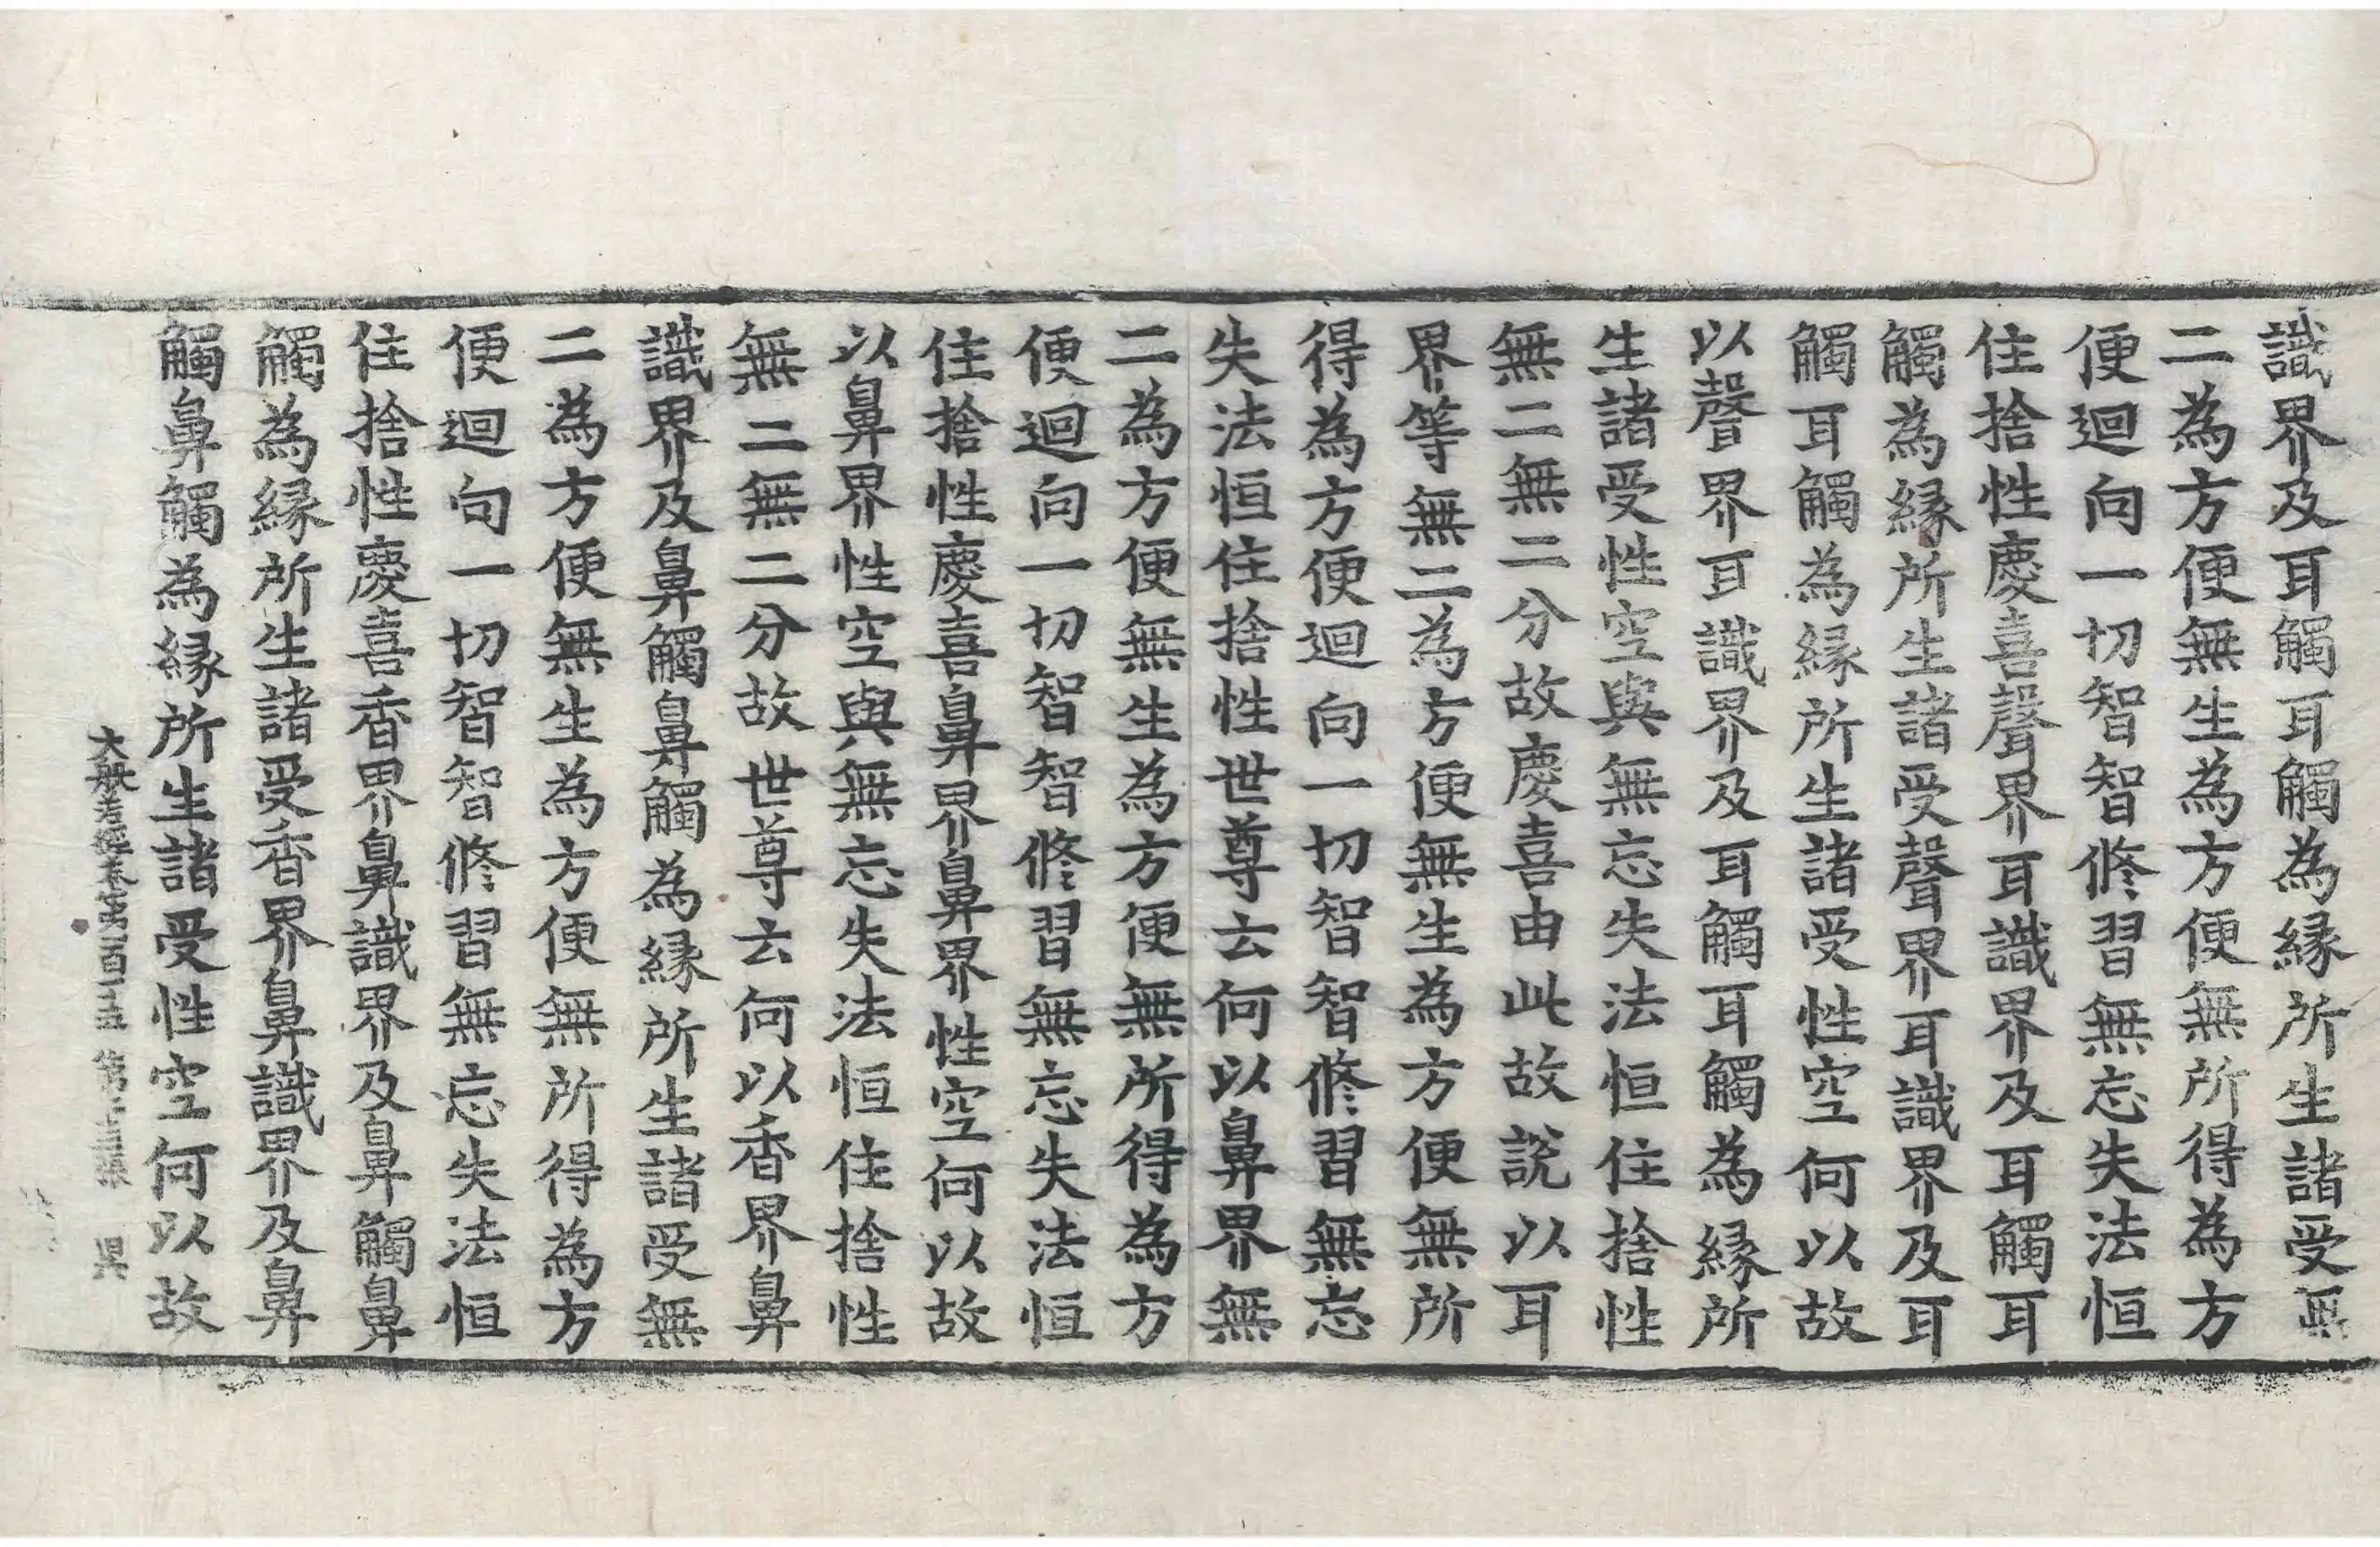 識界及耳觸耳觸為緣所生諸受無
二為方便無生為方便無所得為方
便迴向一切智智修習無忘失法恒
住捨性慶喜聲界耳識界及耳觸耳
觸為緣所生諸受聲界耳識界及耳
觸耳觸為緣所生諸受性空何以故
以聲界耳識界及耳觸耳觸為緣所
生諸受性空與無忘失法恒住捨性
無二無二分故慶喜由此故說以耳
界等無二為方便無生為方便無所
得為方便迴向一切智智修習無忘
失法恒住捨性世尊云何以鼻界無
二為方便無生為方便無所得為方
便迴向一切智智修習無忘失法恒
住捨性慶喜鼻界鼻界性空何以故
以鼻界性空與無忘失法恒住捨性
無二無二分故世尊云何以香界鼻
識界及鼻觸鼻觸為緣所生諸受無
二為方便無生為方便無所得為方
便迴向一切智智修習無忘失法恒
住捨性慶喜香界鼻識界及鼻觸鼻
觸為緣所生諸受香界鼻識界及鼻
觸鼻觸為緣所生諸受性空何以故
大般若經卷第一百一十五 第 張